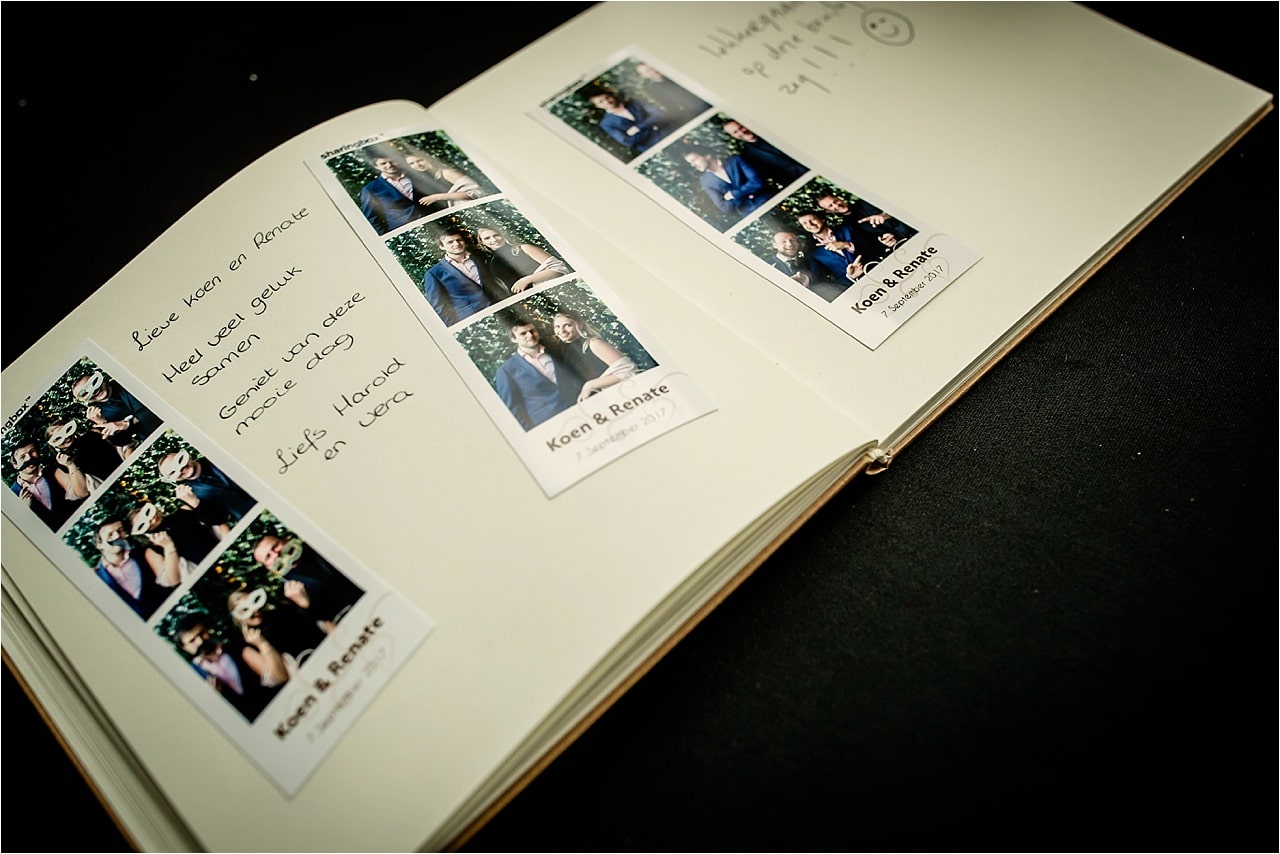 Lieve Koen en Renate
Heel veel geluk
samen
Geniet van deze
mooie dag
Liefs Harold
en Vera
ngbox™
Koen & Renate
7 September 2017
sharingbox™
Koen & Renate
7 September 2017
op deze
zeg!!!
sharingbox™
Koen & Renate
7 September 2017